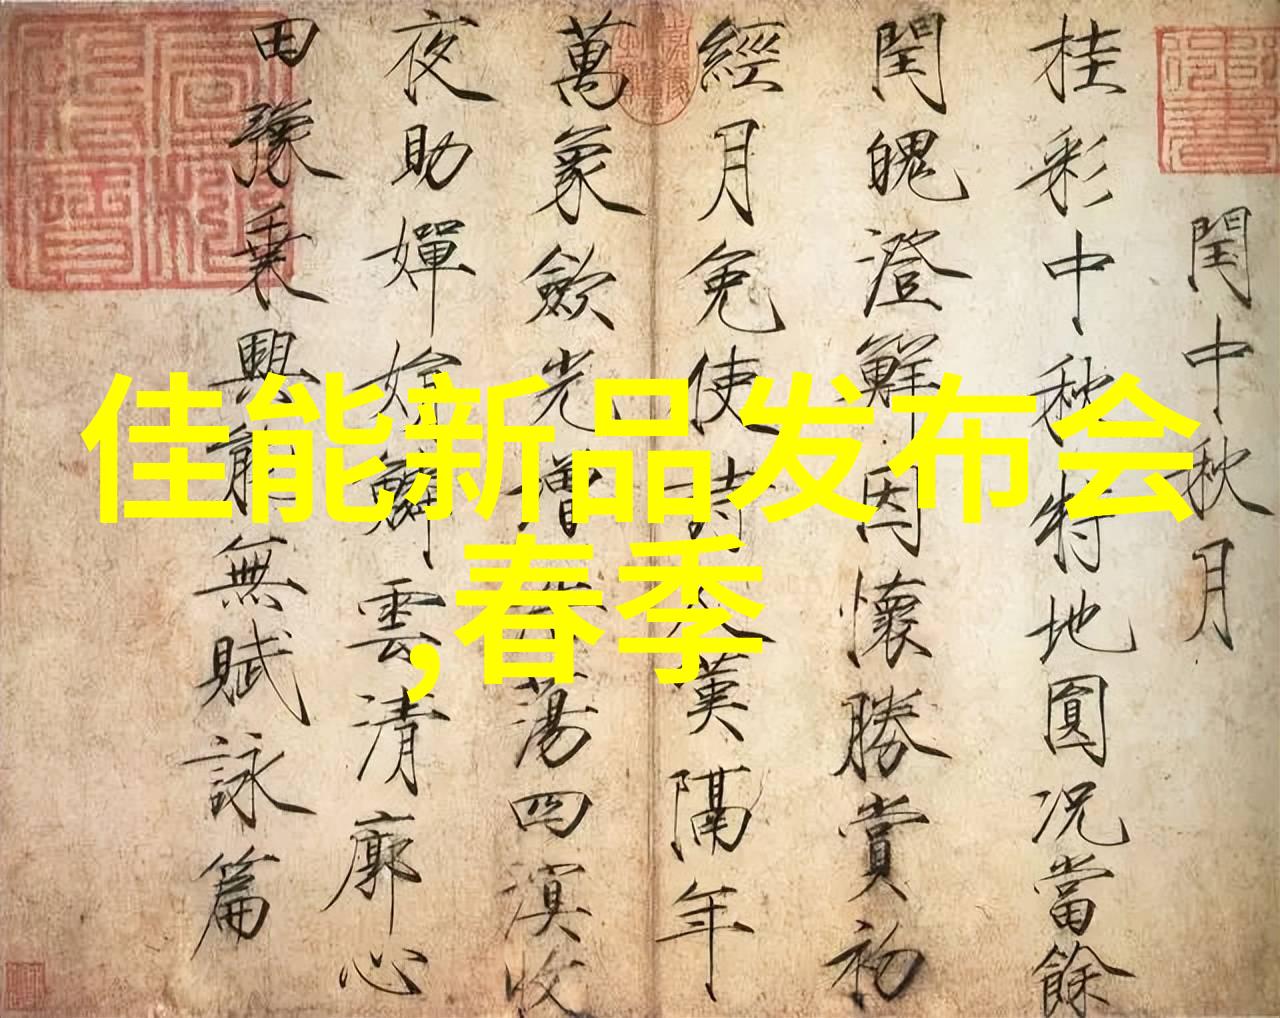 佳能新品发布会
,春季
閏中秋月
桂彩中秋特地圓况當餘
閏魄澄鮮因懷勝賞初
經月免使詩人嘆隔年
萬象歛光增浩蕩四溟收
夜助嬋娟鱗雲清廓心
田豫乗興能無賦詠篇